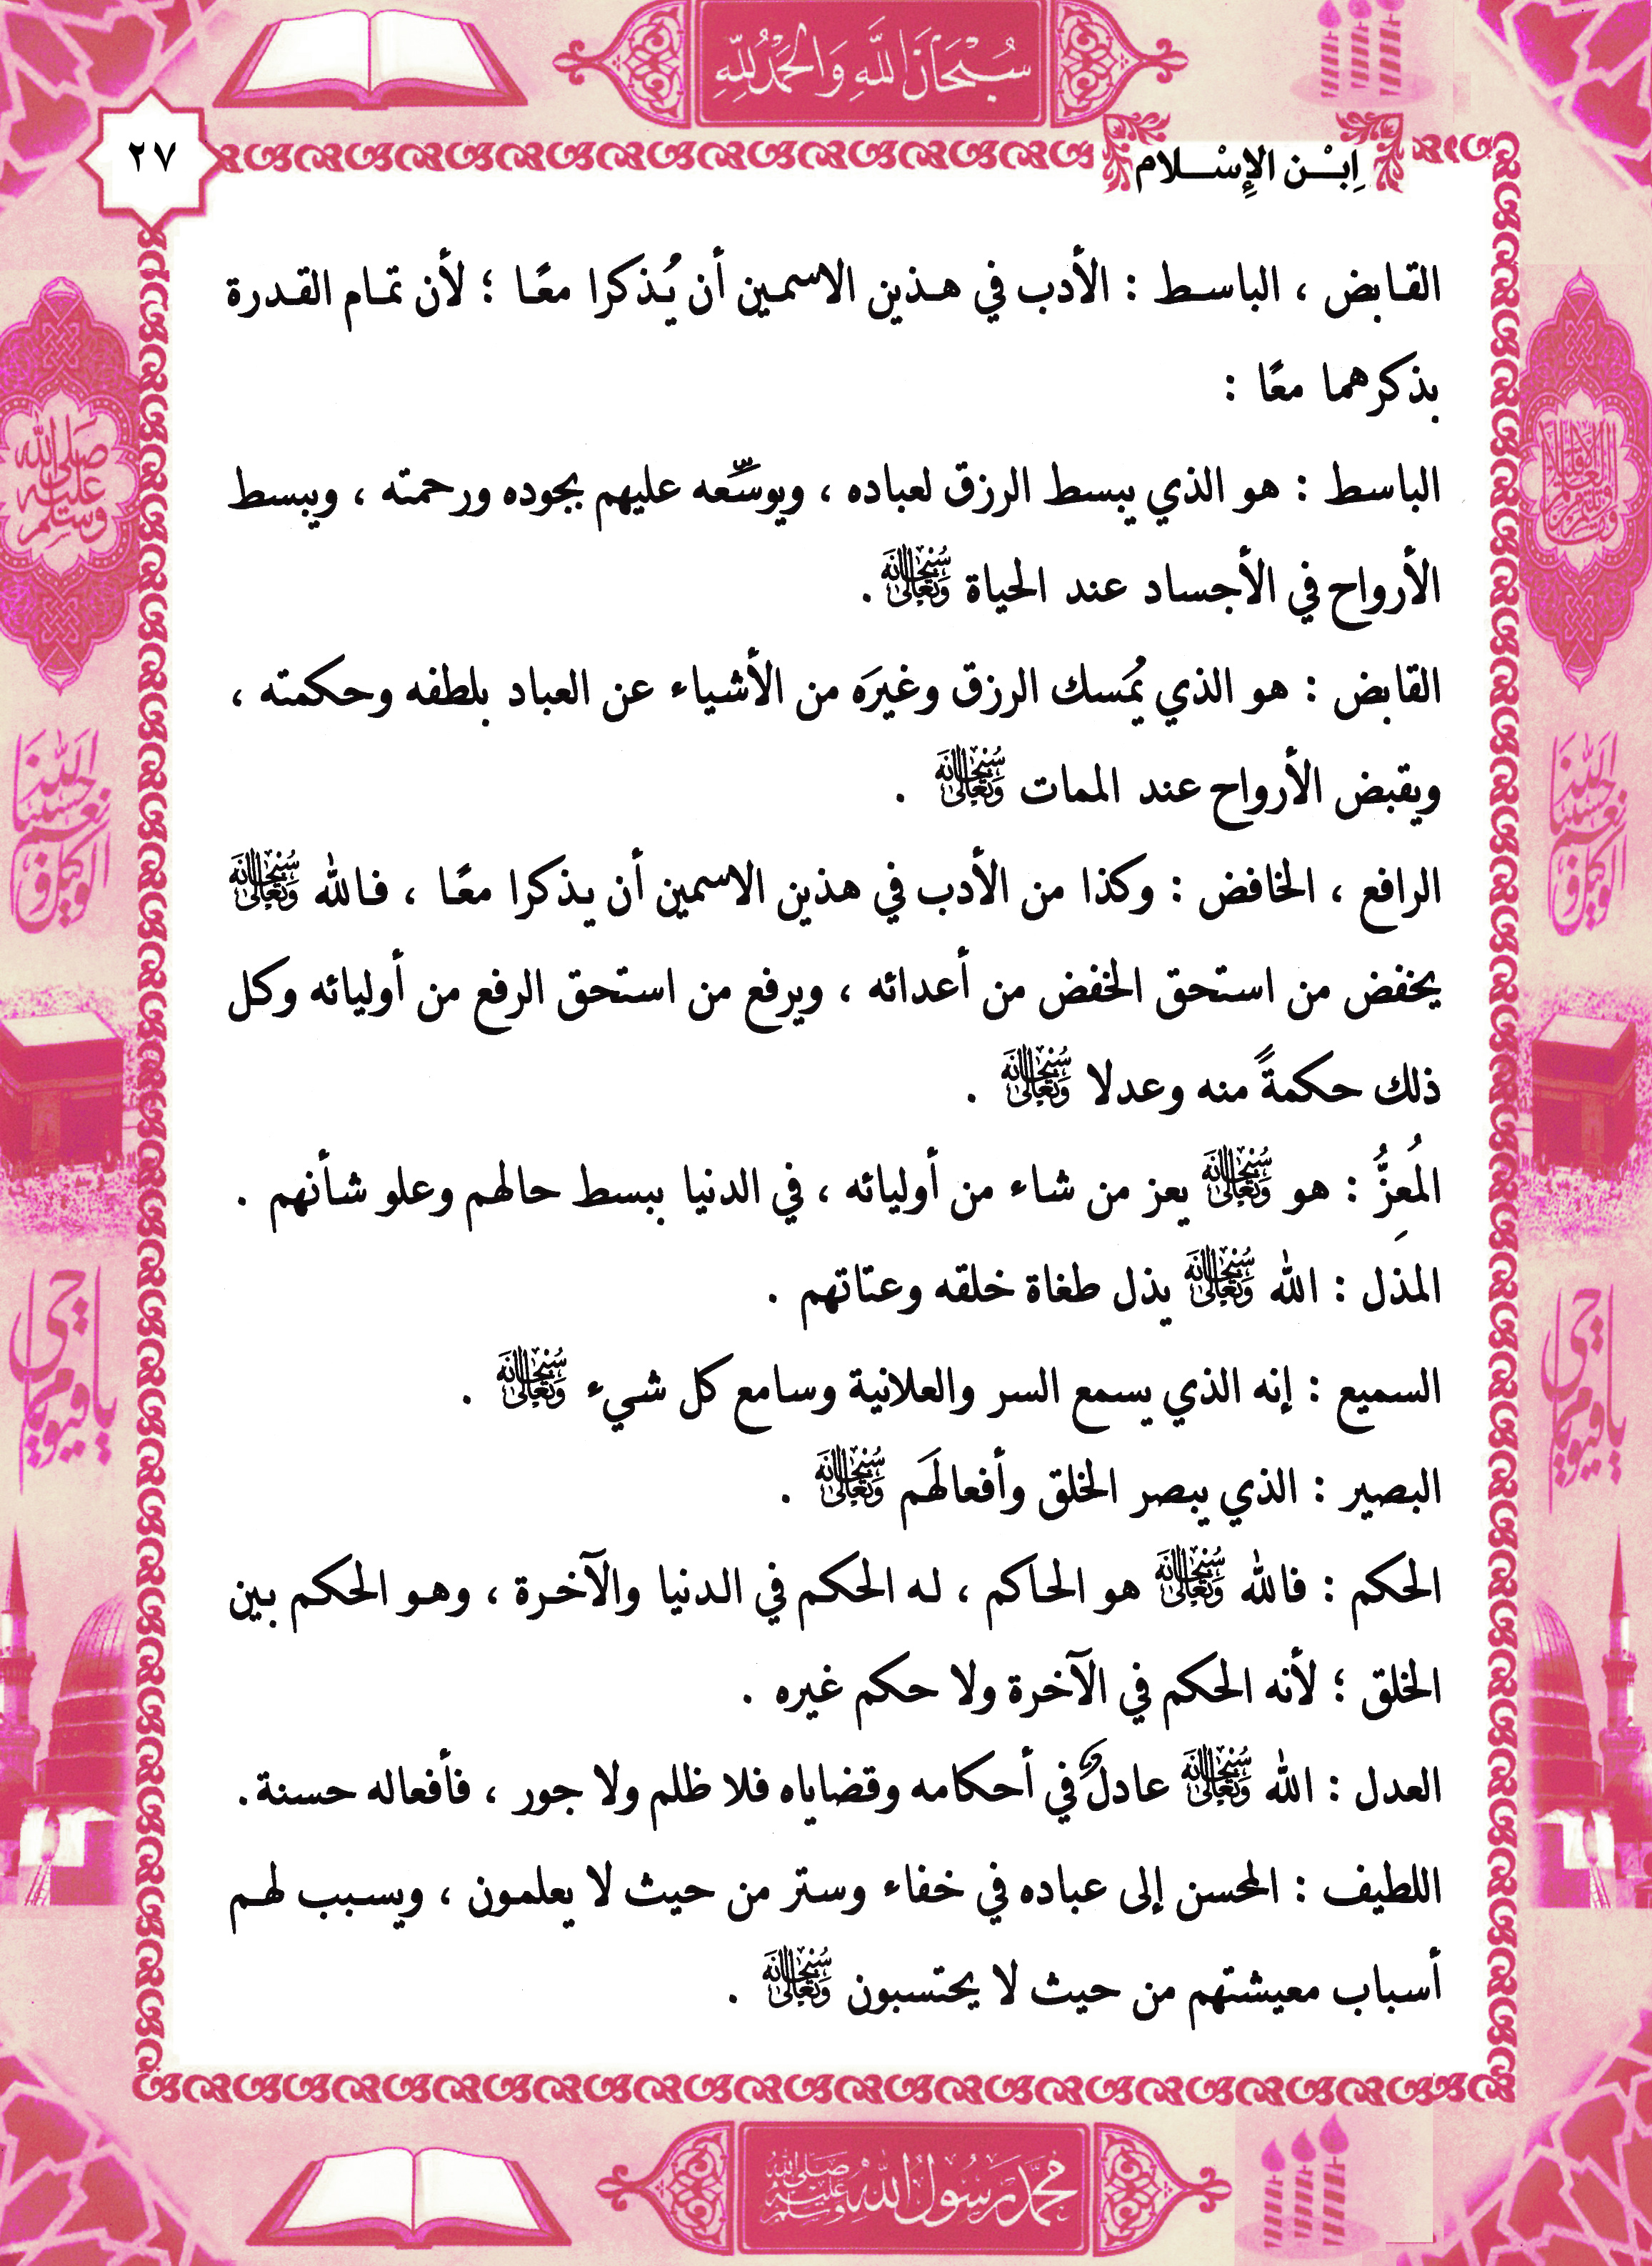 سُبْحَانَ اللَّهِ وَالْحَمْدُ لِلَّهِ
٢٧
اِبْـن الإِسْـلام
القابض ، الباسط : الأدب في هذين الاسمين أن يُذكرا معًا ؛ لأن تمام القدرة
بذكرهما معًا :
الباسط : هو الذي يبسط الرزق لعباده ، ويوسِّعه عليهم بجوده ورحمته ، ويبسط
الأرواح في الأجساد عند الحياة سُبْحَانَهُ وَتَعَالَى .
القابض : هو الذي يُمسك الرزق وغيرَه من الأشياء عن العباد بلطفه وحكمته ،
ويقبض الأرواح عند الممات سُبْحَانَهُ وَتَعَالَى .
الرافع ، الخافض : وكذا من الأدب في هذين الاسمين أن يذكرا معًا ، فالله سُبْحَانَهُ وَتَعَالَى
يخفض من استحق الخفض من أعدائه ، ويرفع من استحق الرفع من أوليائه وكل
ذلك حكمةً منه وعدلا سُبْحَانَهُ وَتَعَالَى .
المُعِزُّ : هو سُبْحَانَهُ وَتَعَالَى يعز من شاء من أوليائه ، في الدنيا ببسط حالهم وعلو شأنهم .
المذل : الله سُبْحَانَهُ وَتَعَالَى يذل طغاة خلقه وعتاتهم .
السميع : إنه الذي يسمع السر والعلانية وسامع كل شيء سُبْحَانَهُ وَتَعَالَى .
البصير : الذي يبصر الخلق وأفعالَهَم سُبْحَانَهُ وَتَعَالَى .
الحكم : فالله سُبْحَانَهُ وَتَعَالَى هو الحاكم ، له الحكم في الدنيا والآخرة ، وهو الحكم بين
الخلق ؛ لأنه الحكم في الآخرة ولا حكم غيره .
العدل : الله سُبْحَانَهُ وَتَعَالَى عادلٌ في أحكامه وقضاياه فلا ظلم ولا جور ، فأفعاله حسنة.
اللطيف : المحسن إلى عباده في خفاء وستر من حيث لا يعلمون ، ويسبب لهم
أسباب معيشتهم من حيث لا يحتسبون سُبْحَانَهُ وَتَعَالَى .
صلى الله عليه وسلم
حسبنا الله ونعم الوكيل
حسبنا الله ونعم الوكيل
يا حي يا قيوم
يا حي يا قيوم
محمد رسول الله صلى الله عليه وسلم